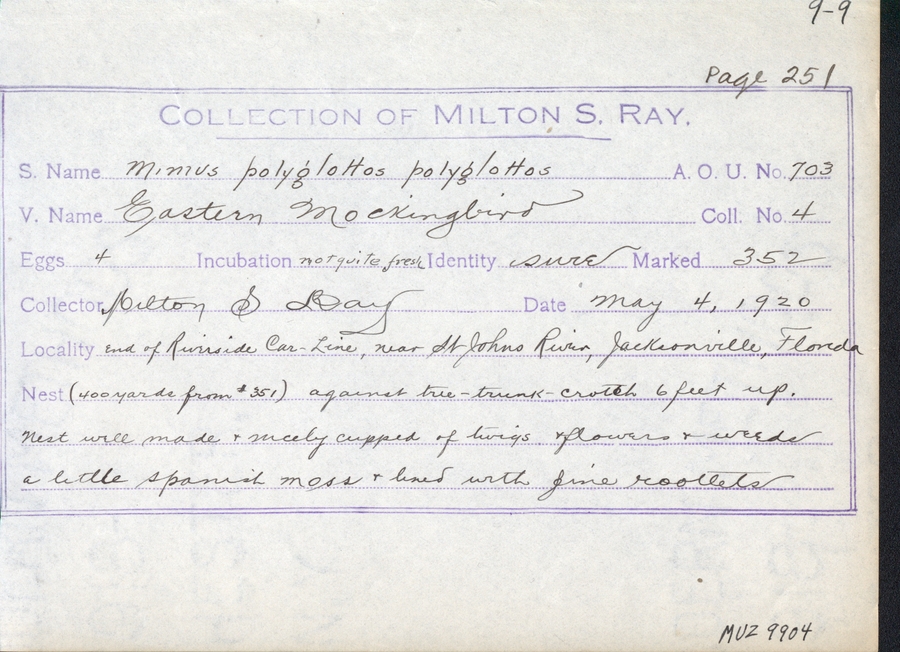 9-9
Page 251
COLLECTION OF MILTON S. RAY.
S. Name Mimus polyglottos polyglottos A. O. U. No. 703
V. Name Eastern Mockingbird Coll. No. 4
Eggs 4 Incubation not quite fresh Identity sure Marked 352
Collector Milton S Ray Date May 4, 1920
Locality end of Riverside Car-Line, near St Johns River, Jacksonville, Florida
Nest (400 yards from #351) against tree-trunk-crotch 6 feet up.
Nest well made + nicely cupped of twigs + flowers + weeds
a little spanish moss + lined with fine rootlets
MVZ 9904